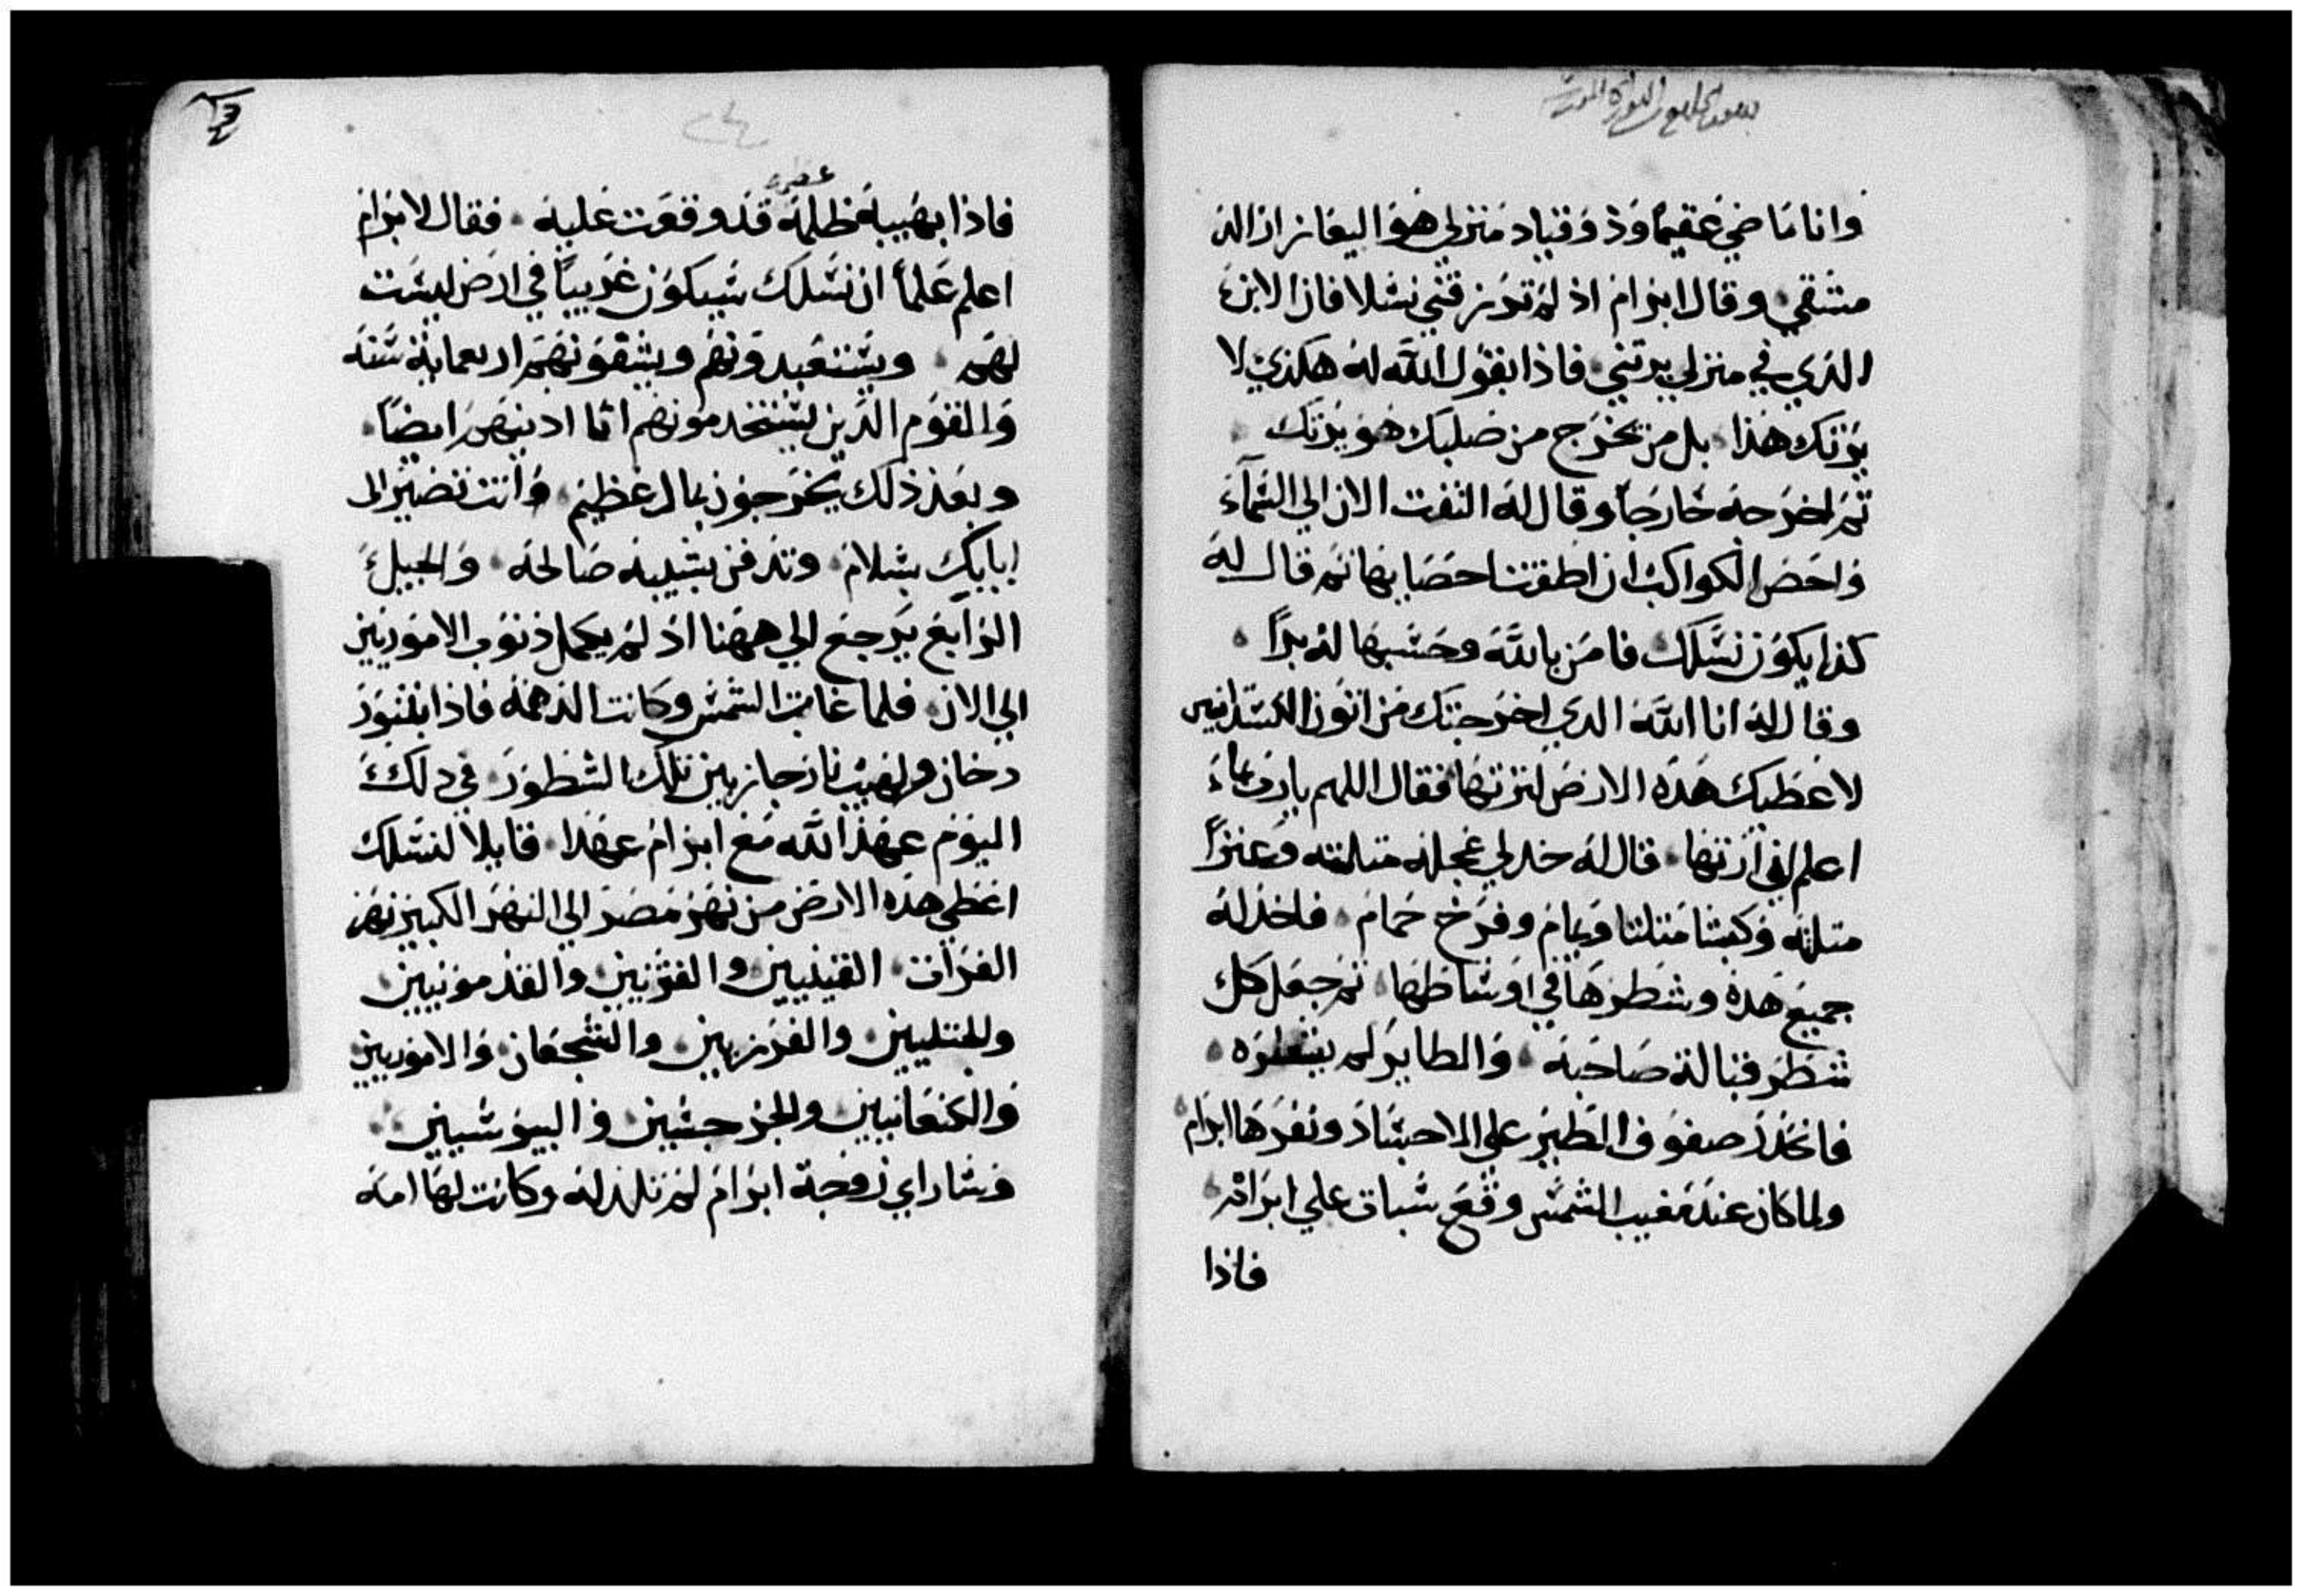 وانا ماضي عقيما وذو قنياد منزلي هو اليعازر الد
مشقي وقال ابرام اذ لم ترزقني نسلا فان الابن
الذي في منزلي يرتني فاذا بقول الله له هكذي لا
يرتك هذا بل من يخرج من صلبك هو يرتك
تم اخرجه خارجا وقال له التفت الان الي السماء
واحص الكواكب ان اطقت احصايها تم قال له
كذا يكون نسلك فامن بالله وحسبها له برا
وقال له انا الله الدي اخرجتك من اتون الكسدانيين
لاعطيك هده الارض لترتها فقال اللهم يارب بماء
اعلم اني ارتها قال له خد لي عجله متلته وعنزا
متلته وكبشا متلتا ويمام وفرخ حمام فاخد له
جميع هده وشطرها في اوساطها تم جعل كل
شطر قبالة صاحبه والطاير لم يشطره
فانحدر صفوف الطير علي الاجساد ونفرها ابرام
ولما كان عند مغيب الشمس وقع سبات علي ابرام
فاذا
عظيمه
فاذا بهيبة ظلمه قد وقعت عليه فقال لابرام
اعلم علما ان نسلك سيكون غريبا في ارض ليست
لهم ويستعبدونهم ويشقونهم اربعماية سنه
والقوم الدين يستخدمونهم انا ادينهم ايضا
وبعد ذلك يخرجون بمال عظيم وانت تصير الى
ابايك بسلام وتدفن بشيبه صالحه والجيل
الرابع يرجع الي ههنا اذ لم يكمل ذنوب الاموريين
الي الان فلما غابت الشمس وكانت الدهمه فاذا بتنور
دخان ولهيب نار جاز بين تلك الشطور في دلك
اليوم عهد الله مع ابرام عهدا قايلا لنسلك
اعطي هده الارض من نهر مصر الي النهر الكبير نهر
الفرات القينيين والقنزيين والقدمونيين
والحتليين والفرزيين والشجعان والاموريين
والكنعانيين والجرجسين واليبوسيين
وساراي زوجة ابرام لم تلد له وكانت لها امه